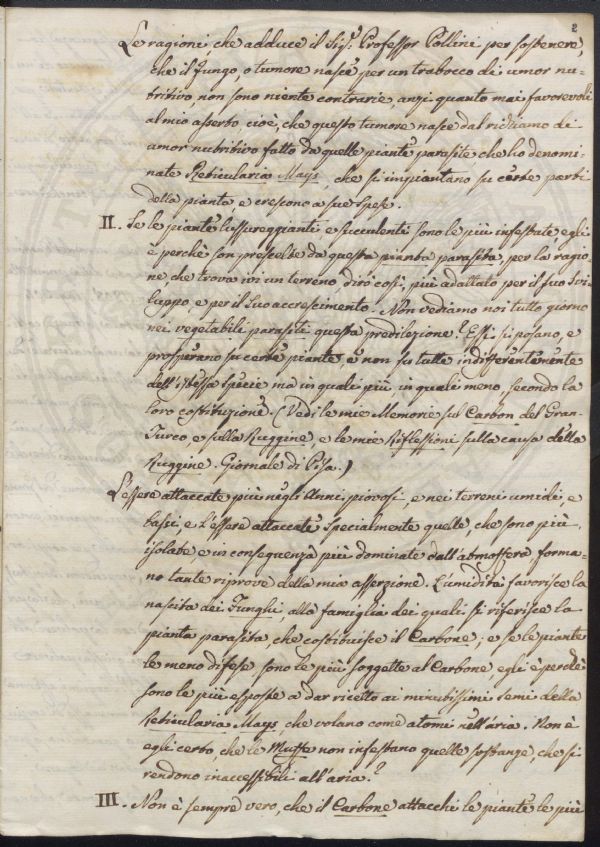 2
Le ragioni, che adduce il Sig.r Professor Pollini per sostenere,
che il fungo, o tumore nasce per un trabocco di umor nu-
tritivo, non sono niente contrarie, anzi quanto mai favorevoli
al mio asserto, cioè, che questo tumore nasce dal richiamo di
umor nutritivo fatto da quelle piante parasite che ho denomi-
nate Reticularia Mays, che si impiantano su certe parti
della pianta e crescono a sue spese.
II. Se le piante lussureggianti e succulenti sono le più infestate, egli
è perchè son prescelte da questa pianta parasita, per la ragio-
ne che trova ivi un terreno, dirò così, più adattato per il suo svi-
luppo, e per il suo accrescimento. Non vediamo noi tutto giorno
nei vegetabili parasiti questa predilezione? Essi si posano, e
prosperano su certe piante, e non su tutte indifferentemente
dell'istessa specie, ma in quali più, in quali meno, secondo la
loro costituzione. (Vedi le mie Memorie sul Carbon del Gran-
Turco e sulla Ruggine, e le mie Riflessioni sulla causa della
Ruggine. Giornale di Pisa.)
L'essere attaccate più negli anni piovosi, e nei terreni umidi, e
bassi, e l'essere attaccate specialmente quelle, che sono più
isolate, e in conseguenza più dominate dall'atmosfera forma-
no tante riprove della mia asserzione. L'umidità favorisce la
nascita dei Funghi, alla famiglia dei quali si riferisce la
pianta parasita, che costituisce il Carbone; e se le piante
le meno difese sono le più soggette al Carbone, egli è perchè
sono le più esposte a dar ricetto ai minutissimi semi della
Reticularia Mays, che volano come atomi nell'aria. Non è
egli certo, che le Muffe non infestano quelle sostanze, che si
rendono inaccessibili all'aria?
III. Non è sempre vero, che il Carbone attacchi le piante le più